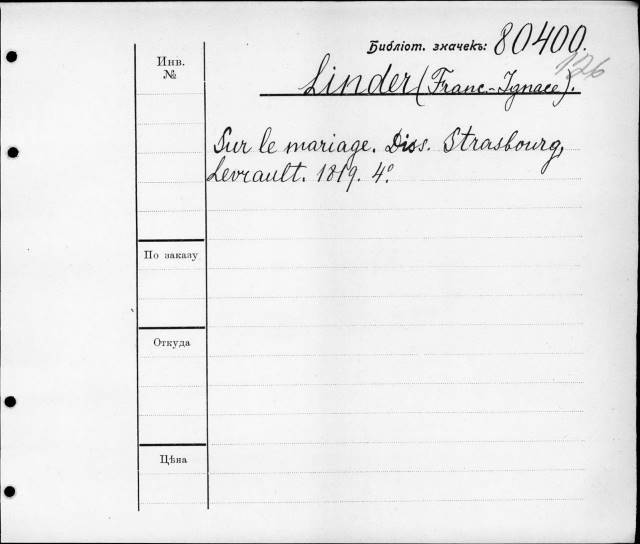 Библіот. значекъ: 80400.
126
Инв.
№
Linder (Franc-Ignace).
Sur le mariage. Diss. Strasbourg,
Levrault. 1819. 4°.
По заказу
Откуда
Цѣна